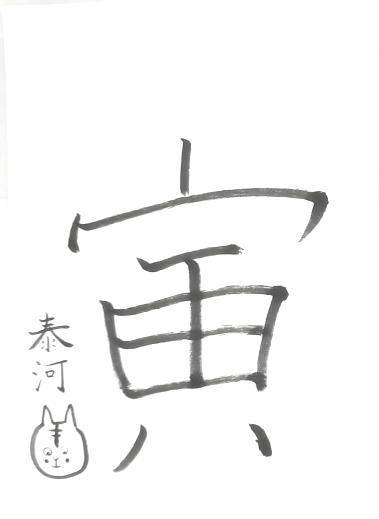 寅
泰河